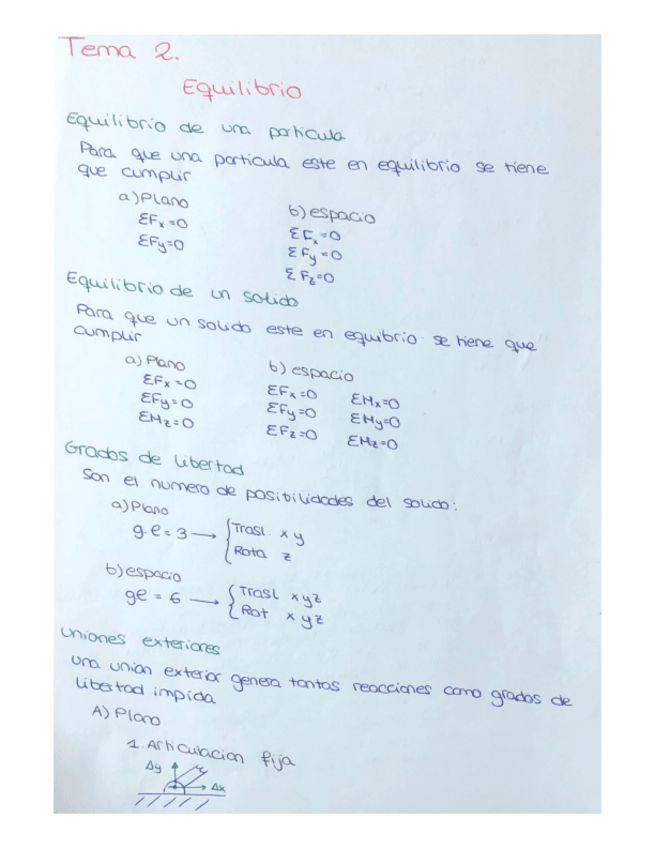 Tema 2.
Equilibrio
Equilibrio de una particula
Para que una particula este en equilibrio se tiene
que cumplir
a) Plano
ΣFx=0
ΣFy=0
b) espacio
ΣFx=0
ΣFy=0
ΣFz=0
Equilibrio de un solido
Para que un solido este en equibrio se tiene que
cumplir
a) Plano
ΣFx=0
ΣFy=0
ΣMz=0
b) espacio
ΣFx=0 ΣMx=0
ΣFy=0 ΣMy=0
ΣFz=0 ΣMz=0
Grados de libertad
Son el numero de posibilidades del solido:
a) Plano
g.l = 3 → { Trasl. x y
Rota z
b) espacio
gl = 6 → { Trasl x y z
Rot x y z
Uniones exteriores
Una union exterior genera tantas reacciones como grados de
libertad impida
A) Plano
1. Articulacion fija
Δy
Δx